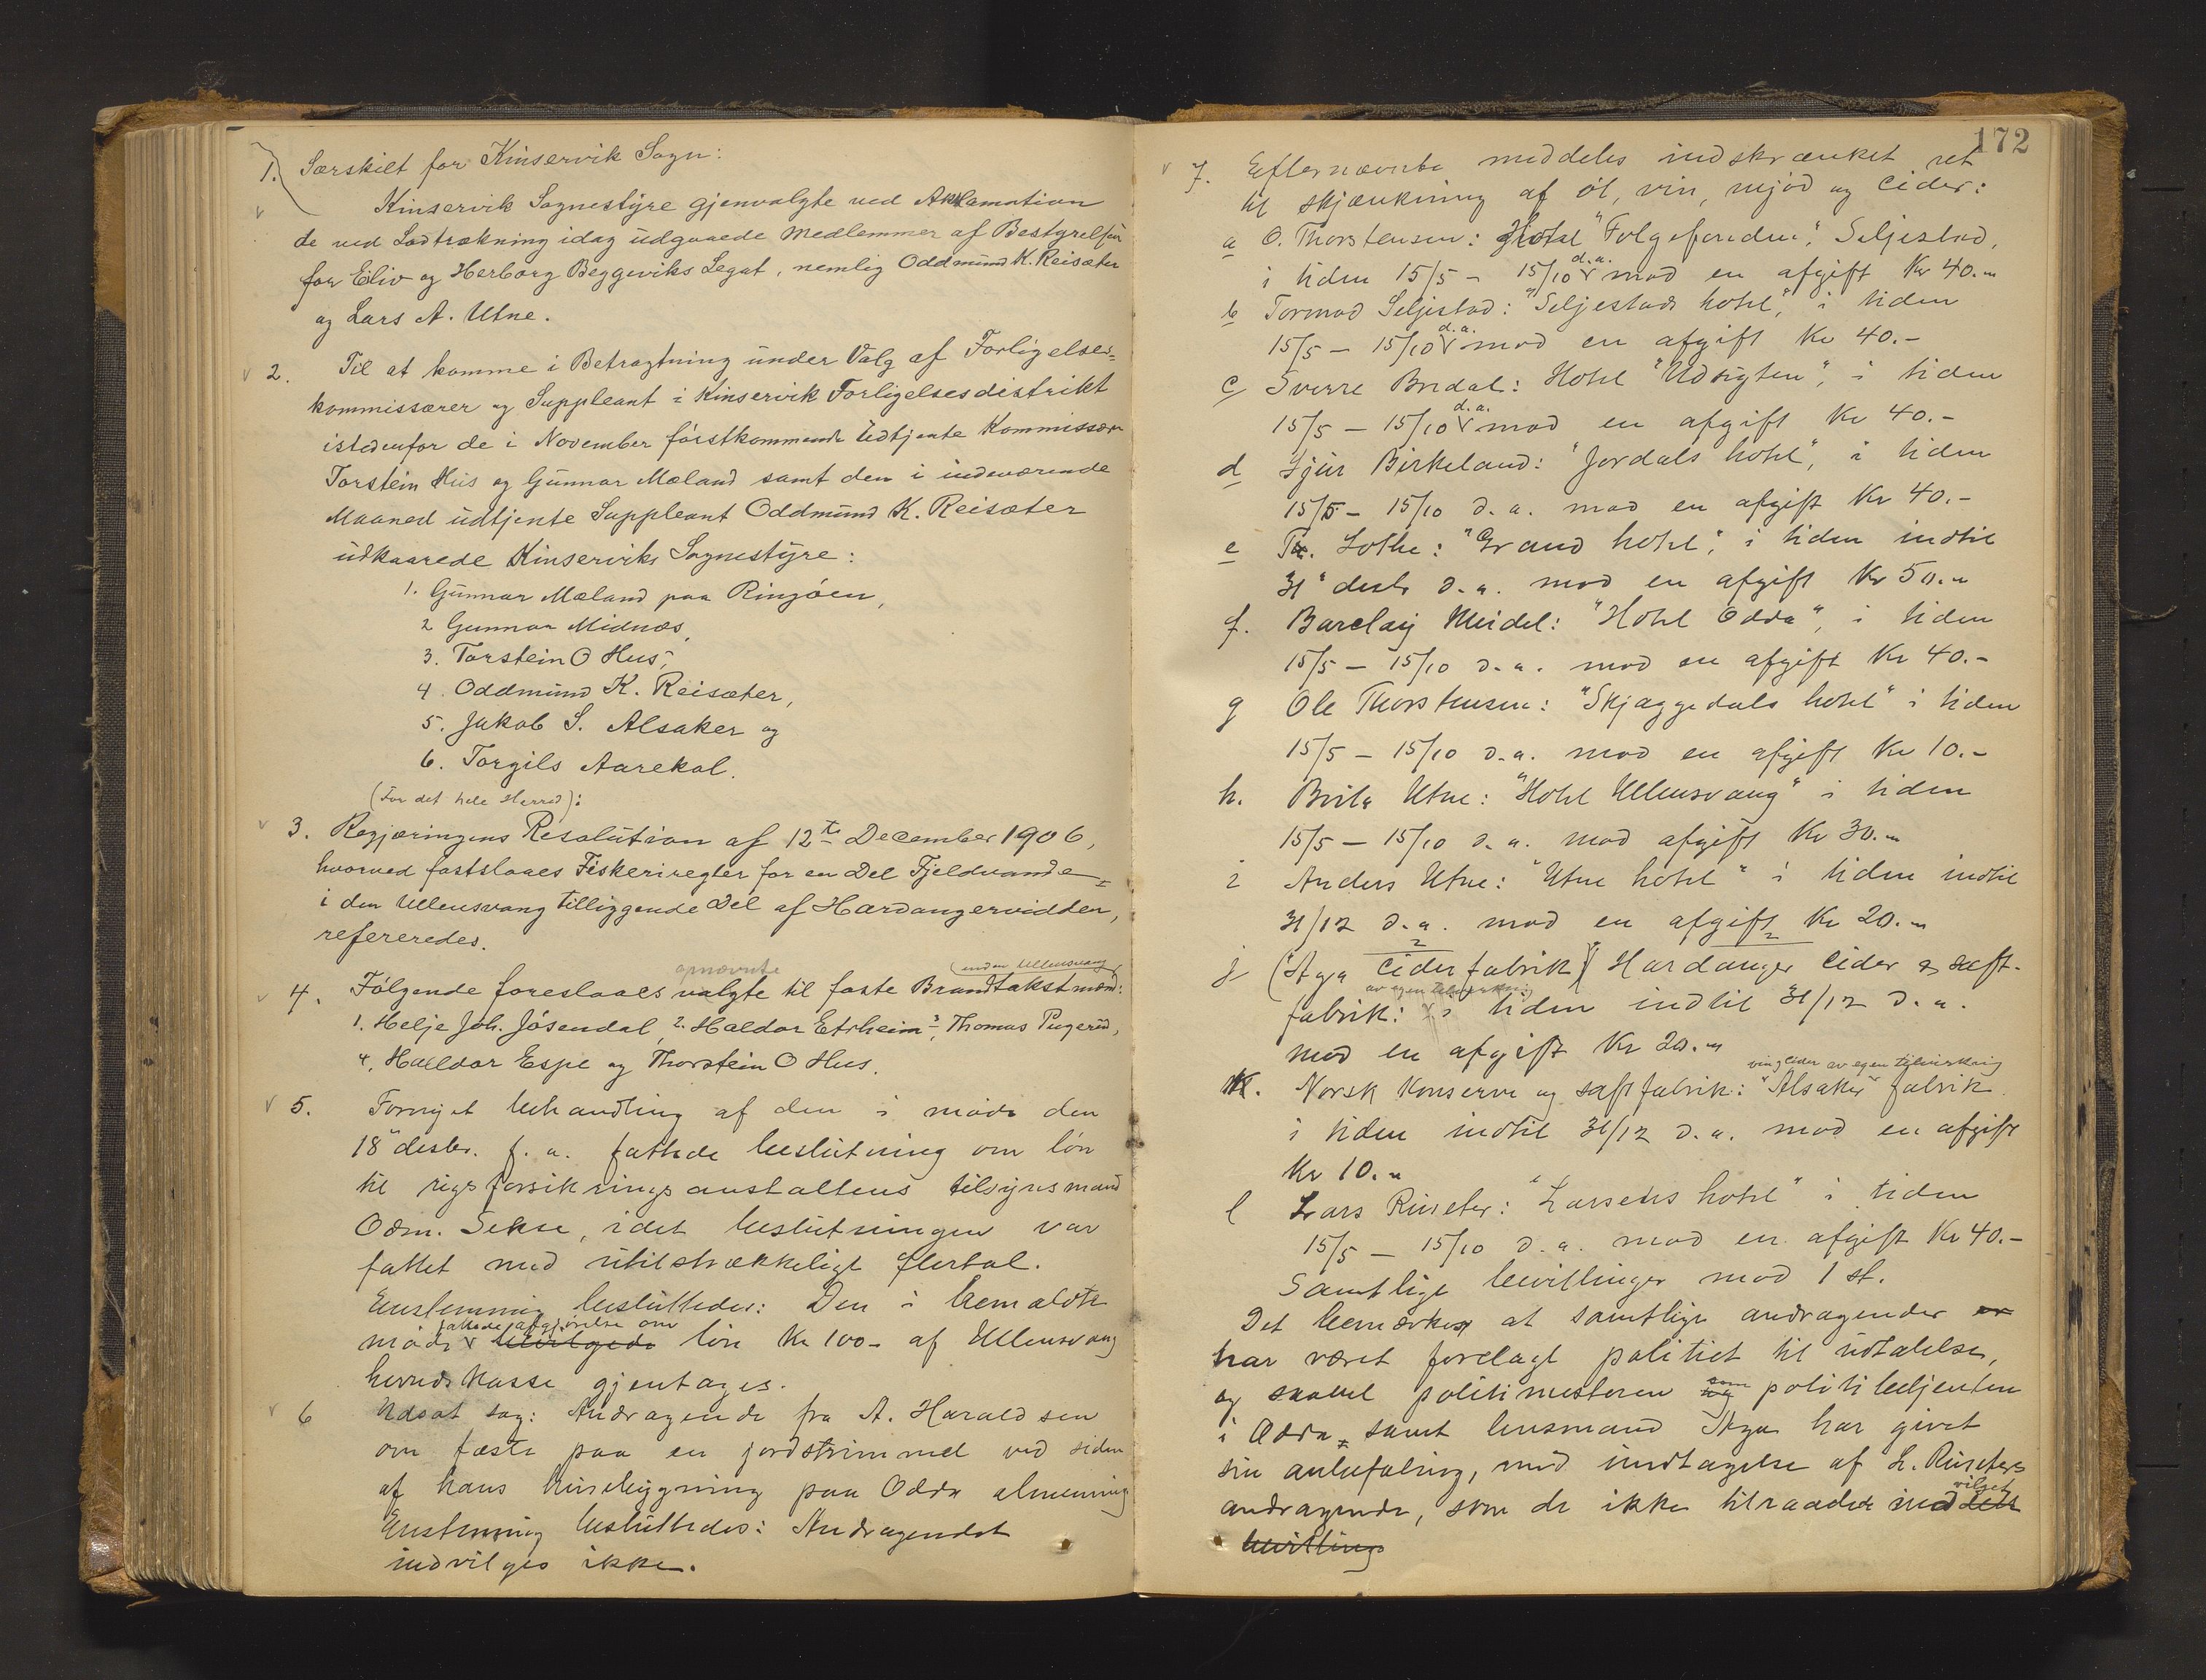 1. Særskilt for Kinservik Sogn:
Kinservik Sognestyre gjenvalgte ved Aklamation
de ved Lodtrækning idag udgaaede Medlemmer af Bestyrelsen
for Eiliv og Herborg Beggeviks Legat, nemlig Oddmund K. Reisæter
og Lars A. Utne.
2. Til at komme i Betragtning under Valg af Forligelses-
kommissærer og Suppleant i Kinservik Forligelsesdistrikt
istedenfor de i November förstkommende Udtjente Kommissærer
Torstein Hus og Gunnar Mæland samt den i indeværende
Maaned udtjente Suppleant Oddmund K. Reisæter
udkaarede Kinserviks Sognestyre:
1. Gunnar Mæland paa Ringöen,
2 Gunnar Midnæs,
3. Torstein O Hus,
4. Oddmund K. Reisæter,
5. Jakob S. Alsaker og
6. Torgils Aarekol.
(For det hele Herred):
3. Regjæringens Resolution af 12te December 1906,
hvorved fastslaaes Fiskeriregler for en Del Fjeldvande
i den Ullensvang tilliggende Del af Hardangervidden,
refereredes.
opnævnte (under Ullensvang)
4. Følgende foreslaaes valgte til faste Brandtakstmænd:
1. Helje Joh. Jösendal, 2. Haldor Etrheim, 3. Thomas Pugerud,
4. Halldor Espe og Thorstein O Hus.
5. Fornyet behandling af den i möde den
18de desbr. f. a. fattede beslutning om lön
til rigsforsikringsanstaltens tilsynsmand
Odm. Sekse, idet beslutningen var
fattet med utilstrækkeligt flertal.
Enstemmig besluttedes: Den i bemældte
fattede afgjörelse om
möde bevilgede lön Kr 100- af Ullensvang
herredskasse gjentages.
6 Udsat sag: Andragende fra A. Haraldsen
om fæste paa en jordstrimmel ved siden
af hans husebygning paa Odda almenning
Enstemmig besluttedes: Andragendet
indvilges ikke.
172
7. Efternævnte meddeles indskrænket ret
til skjænkning af öl, vin, mjöd og cider:
a O. Thorstensen: Hotel "Folgefonden", Seljestad,
d.a.
i tiden 15/5 - 15/10 mod en afgift Kr 40.-
b Tormod Seljestad: "Seljestads hotel", i tiden
d.a.
15/5 - 15/10 mod en afgift Kr 40.-
c Sverre Bredal: Hotel "Udsigten", i tiden
d.a.
15/5 - 15/10 mod en afgift Kr 40.-
d Sjur Birkeland: "Jordals hotel", i tiden
15/5 - 15/10 d.a. mod en afgift Kr 40.-
e Lothe: "Grand hotel", i tiden indtil
31" desbr d.a. mod en afgift Kr 50.-
f. Barclay Meidel: "Hotel Odda", i tiden
15/5 - 15/10 d.a. mod en afgift Kr 40.-
g Ole Thorstensen: "Skjæggedals hotel" i tiden
15/5 - 15/10 d.a. mod en afgift Kr 10.-
h. Brita Utne: "Hotel Ullensvang" i tiden
15/5 - 15/10 d.a. mod afgift Kr 30.-
i Anders Utne: "Utne hotel" i tiden indtil
31/12 d.a. mod en afgift Kr 20.-
j (Aga Ciderfabrik) Hardanger Cider & saft-
av egen tilvirkning
fabrik: i tiden indtil 31/12 d.a.
mod en afgift Kr 20.-
vin & cider av egen tilvirkning
K. Norsk Konserve og saftfabrik: "Alsaker" fabrik
i tiden indtil 31/12 d.a. mod en afgift
Kr 10.-
l Lars Reisæter: "Larsens hotel" i tiden
15/5 - 15/10 d.a. mod en afgift Kr 40.-
Samtlige bevillinger mod 1 st.
Det bemærkes at samtlige andragender er
har været forelagt politiet til udtalelse,
som
og saavel politimesteren og politibetjenten
i Odda, samt lensmand Aga har givet
sin anbefaling, med undtagelse af L. Reisæters
vilget
andragende, som de ikke tilraader ind
bevilling